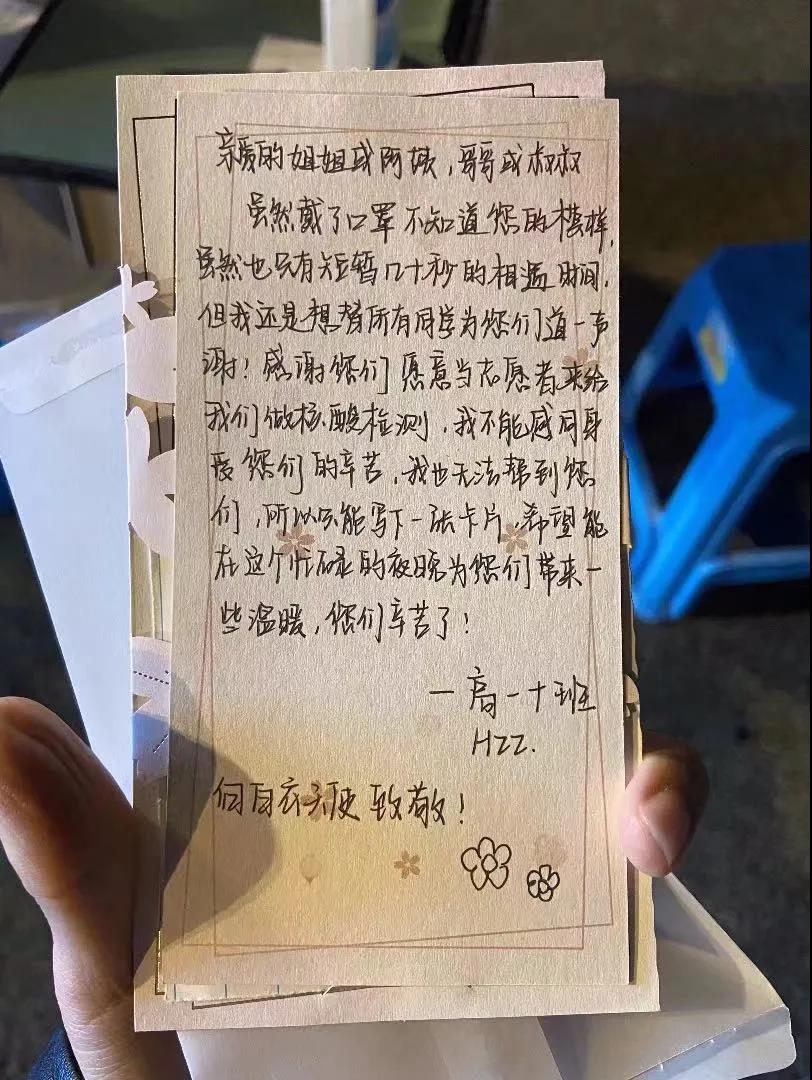 亲爱的姐姐或阿姨，哥哥或叔叔
虽然戴了口罩不知道您的模样，
虽然也只有短暂几十秒的相遇时间，
但我还是想替所有同学为您们道一声
谢！感谢您们愿意当志愿者来给
我们做核酸检测，我不能感同身
受您们的辛苦，我也无法帮到您
们，所以只能写下一张卡片，希望能
在这个忙碌的夜晚为您们带来一
些温暖，您们辛苦了！
—高一十班
HZZ.
向白衣天使致敬！